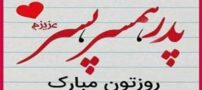 عزیزم
پدر همسر پسر
روزتون مبارک